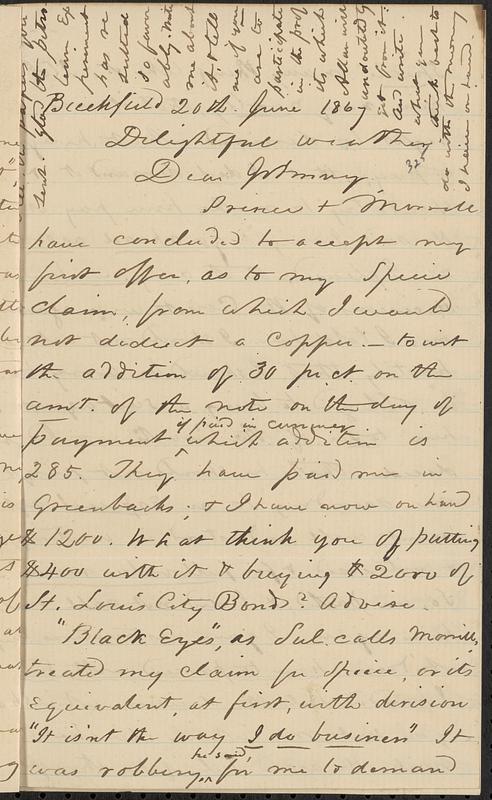 Buckfield 20th. June 1867
Delightful weather
325
Dear Johnny.
Prince & Morrill
have concluded to accept my
first offer, as to my Specie
claim, from which I would
not deduct a copper:— to wit
the addition of 30 pr. ct on the
amt. of the note on the day of
if paid in currency
payment which addition is
285. They have paid me in
Greenbacks; & I have now on hand
$1200. What think you of putting
$400 with it & buying $2000 of
St. Louis City Bonds? Advise.
"Black Eyes", as Sul. calls Morrill,
treated my claim for Specie, or its
Equivalent, at first, with derision
"It isn't the way I do business" It
he said,
was robbery, for me to demand
glad the petro
leum Ex
periment
has re
sulted
so favor
ably. Write
me about
it, & tell
me if you
are to
participate
in the prof
its which
Allan will
undoubtedly
get from it:
and write
what you
think best to
do with the money
I have on hand.